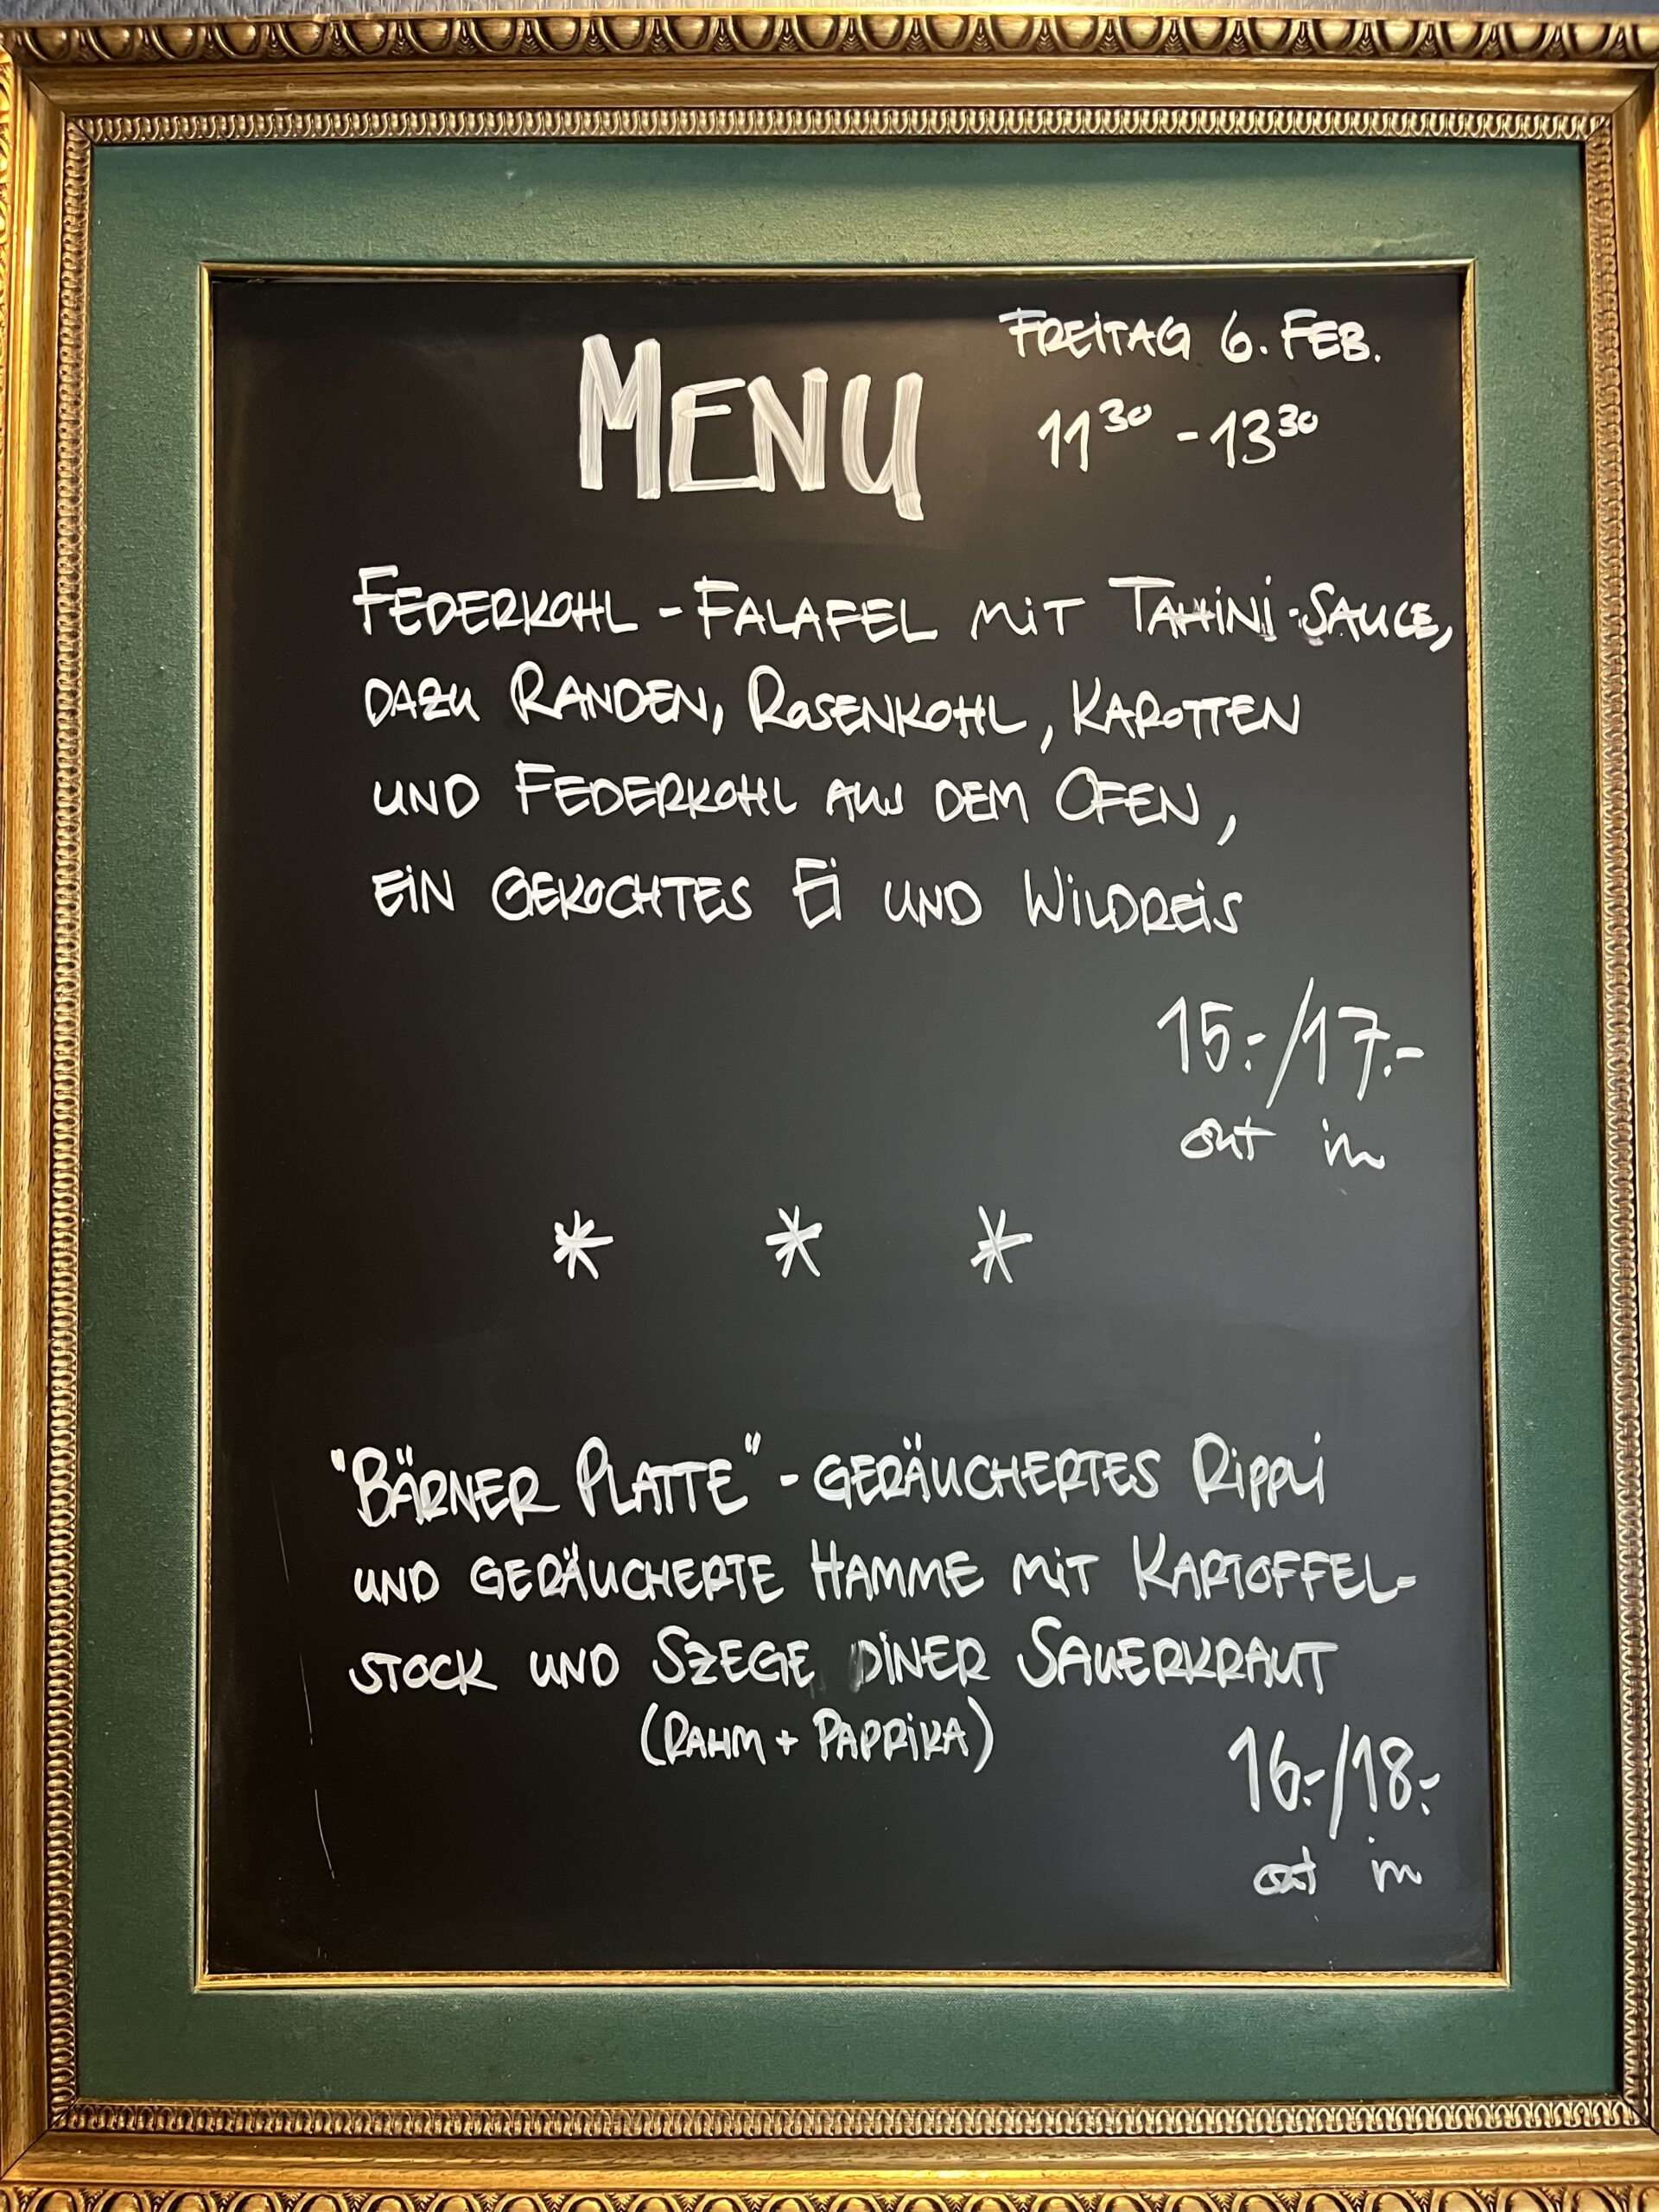 MENU
FREITAG 6. FEB.
11³⁰ - 13³⁰
FEDERKOHL - FALAFEL MIT TAHINI-SAUCE,
DAZU RANDEN, ROSENKOHL, KAROTTEN
UND FEDERKOHL AUS DEM OFEN,
EIN GEKOCHTES EI UND WILDREIS
15.-/17.-
out in
* * *
"BÄRNER PLATTE" - GERÄUCHERTES RIPPLI
UND GERÄUCHERTE HAMME MIT KARTOFFEL-
STOCK UND SZEGEDINER SAUERKRAUT
(RAHM + PAPRIKA)
16.-/18.-
out in